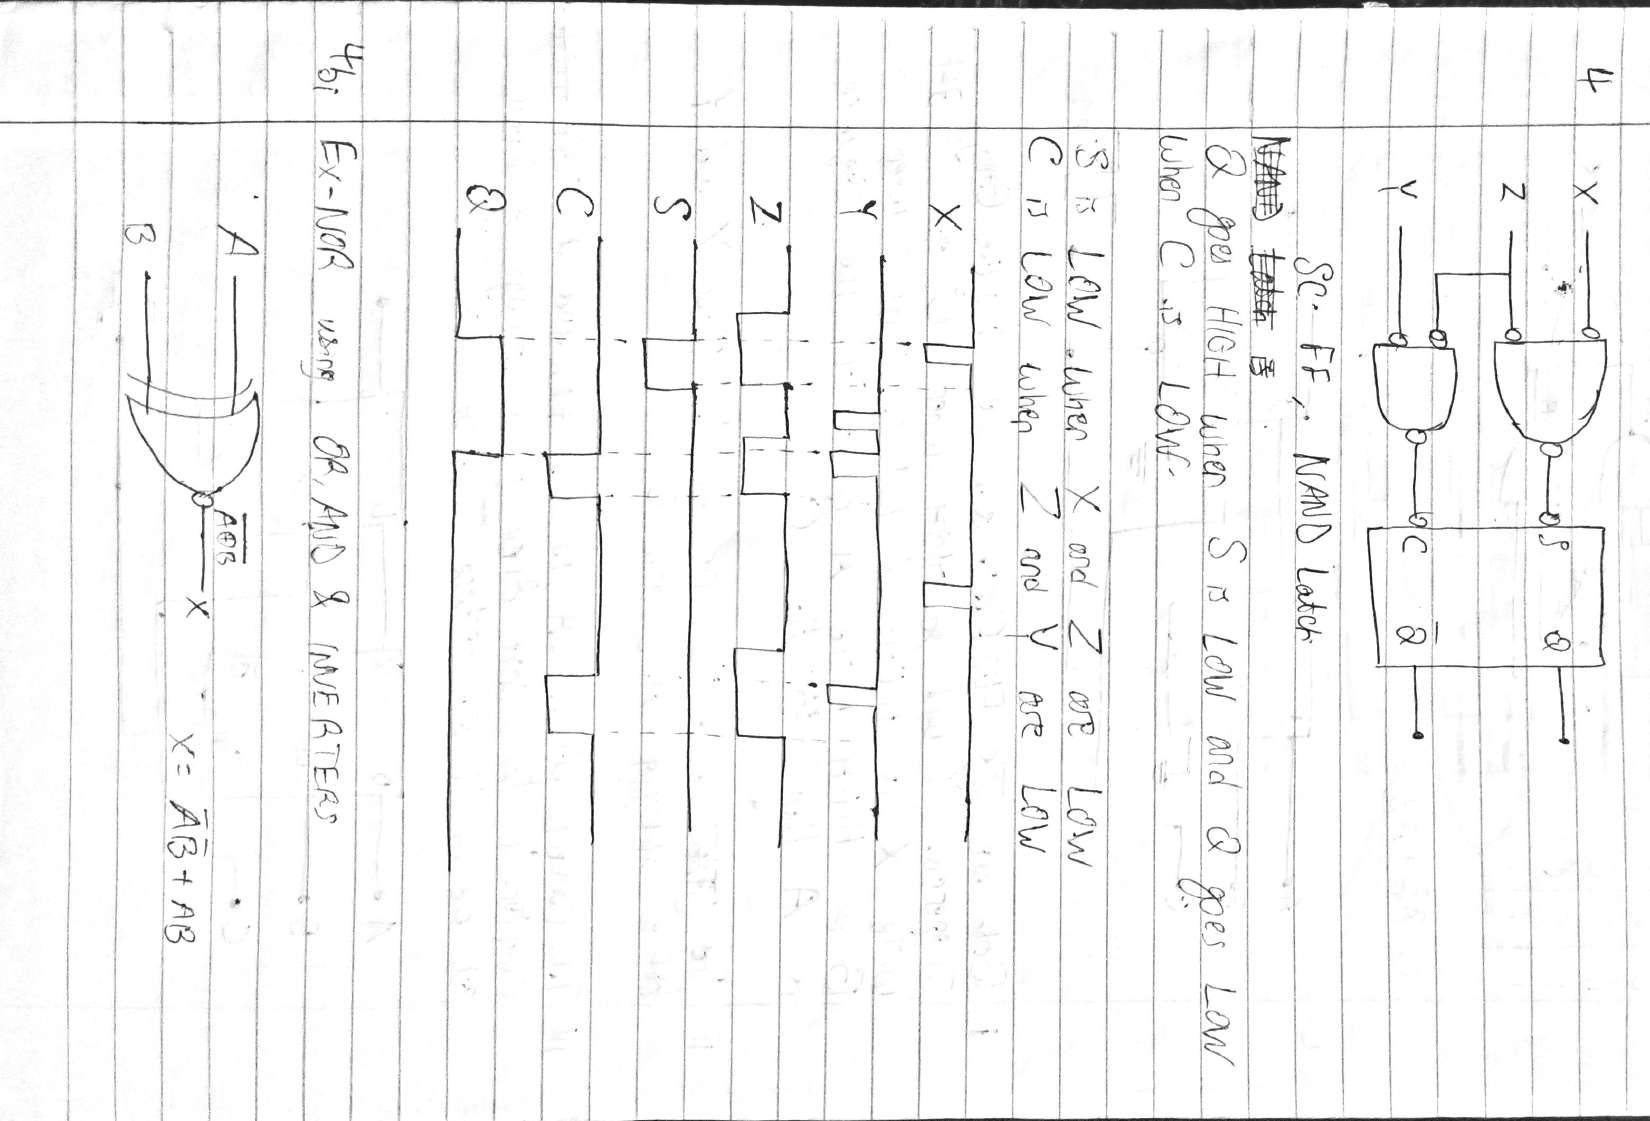 4
X
Z
Y
S
Q
C
Q̅
SC. FF, NAND Latch
NAND Latch is
Q goes HIGH when S is LOW and Q goes LOW
when C is LOW.
S is LOW when X and Z are LOW
C is LOW when Z and Y are LOW
X
Y
Z
S
C
Q
4bi Ex-NOR using OR, AND & INVERTERS
A
B
A̅⊕̅B̅
X
X = A̅B̅ + AB